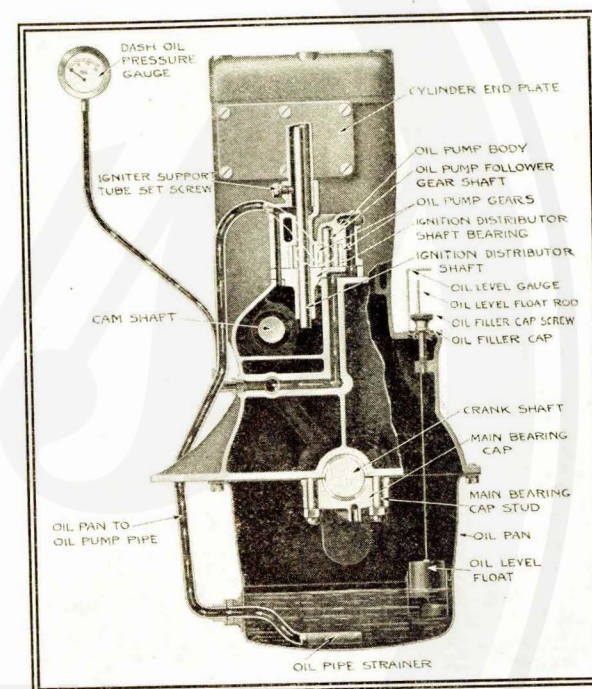 DASH OIL
PRESSURE
GAUGE
CYLINDER END PLATE
OIL PUMP BODY
OIL PUMP FOLLOWER
GEAR SHAFT
IGNITER SUPPORT
TUBE SET SCREW
OIL PUMP GEARS
IGNITION DISTRIBUTOR
SHAFT BEARING
IGNITION DISTRIBUTOR
SHAFT
OIL LEVEL GAUGE
OIL LEVEL FLOAT ROD
CAM SHAFT
OIL FILLER CAP SCREW
OIL FILLER CAP
CRANK SHAFT
MAIN BEARING
CAP
MAIN BEARING
CAP STUD
OIL PAN TO
OIL PUMP PIPE
OIL PAN
OIL LEVEL
FLOAT
OIL PIPE STRAINER